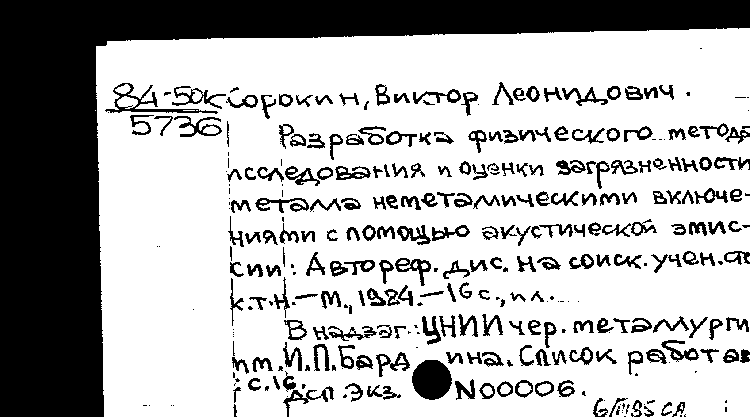 84-50к Сорокин, Виктор Леонидович.
5736
Разработка физического метода
исследования и оценки загрязненности
металла неметаллическими включе-
ниями с помощью акустической эмис-
сии: Автореф. дис. на соиск. учен. ст
к.т.н.—М., 1984.—16 с., ил.
В надзаг.: ЦНИИ чер. металлурги
им. И.П.Бардина. Список работ ав
: с.16.
ДСП. Экз. N00006.